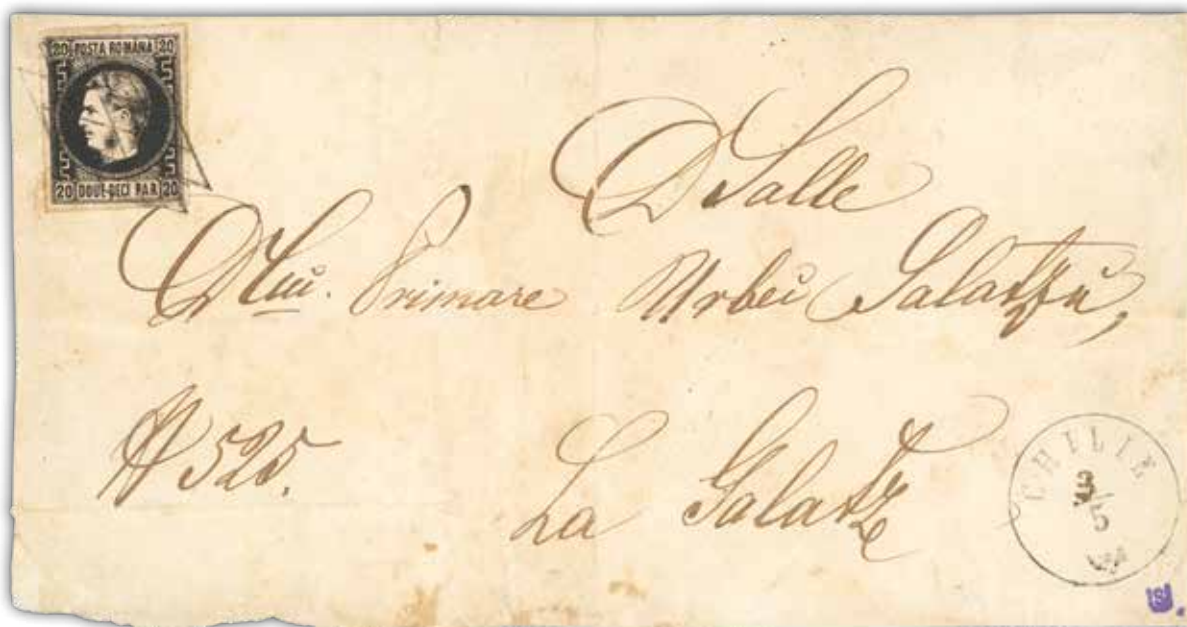 20 POSTA ROMÂNA 20
20 DOUE-DECI PAR. 20
DSalle
DLui. Primare Urbei Galatzu,
N 525.
La Galatz
CHILIE
3/5